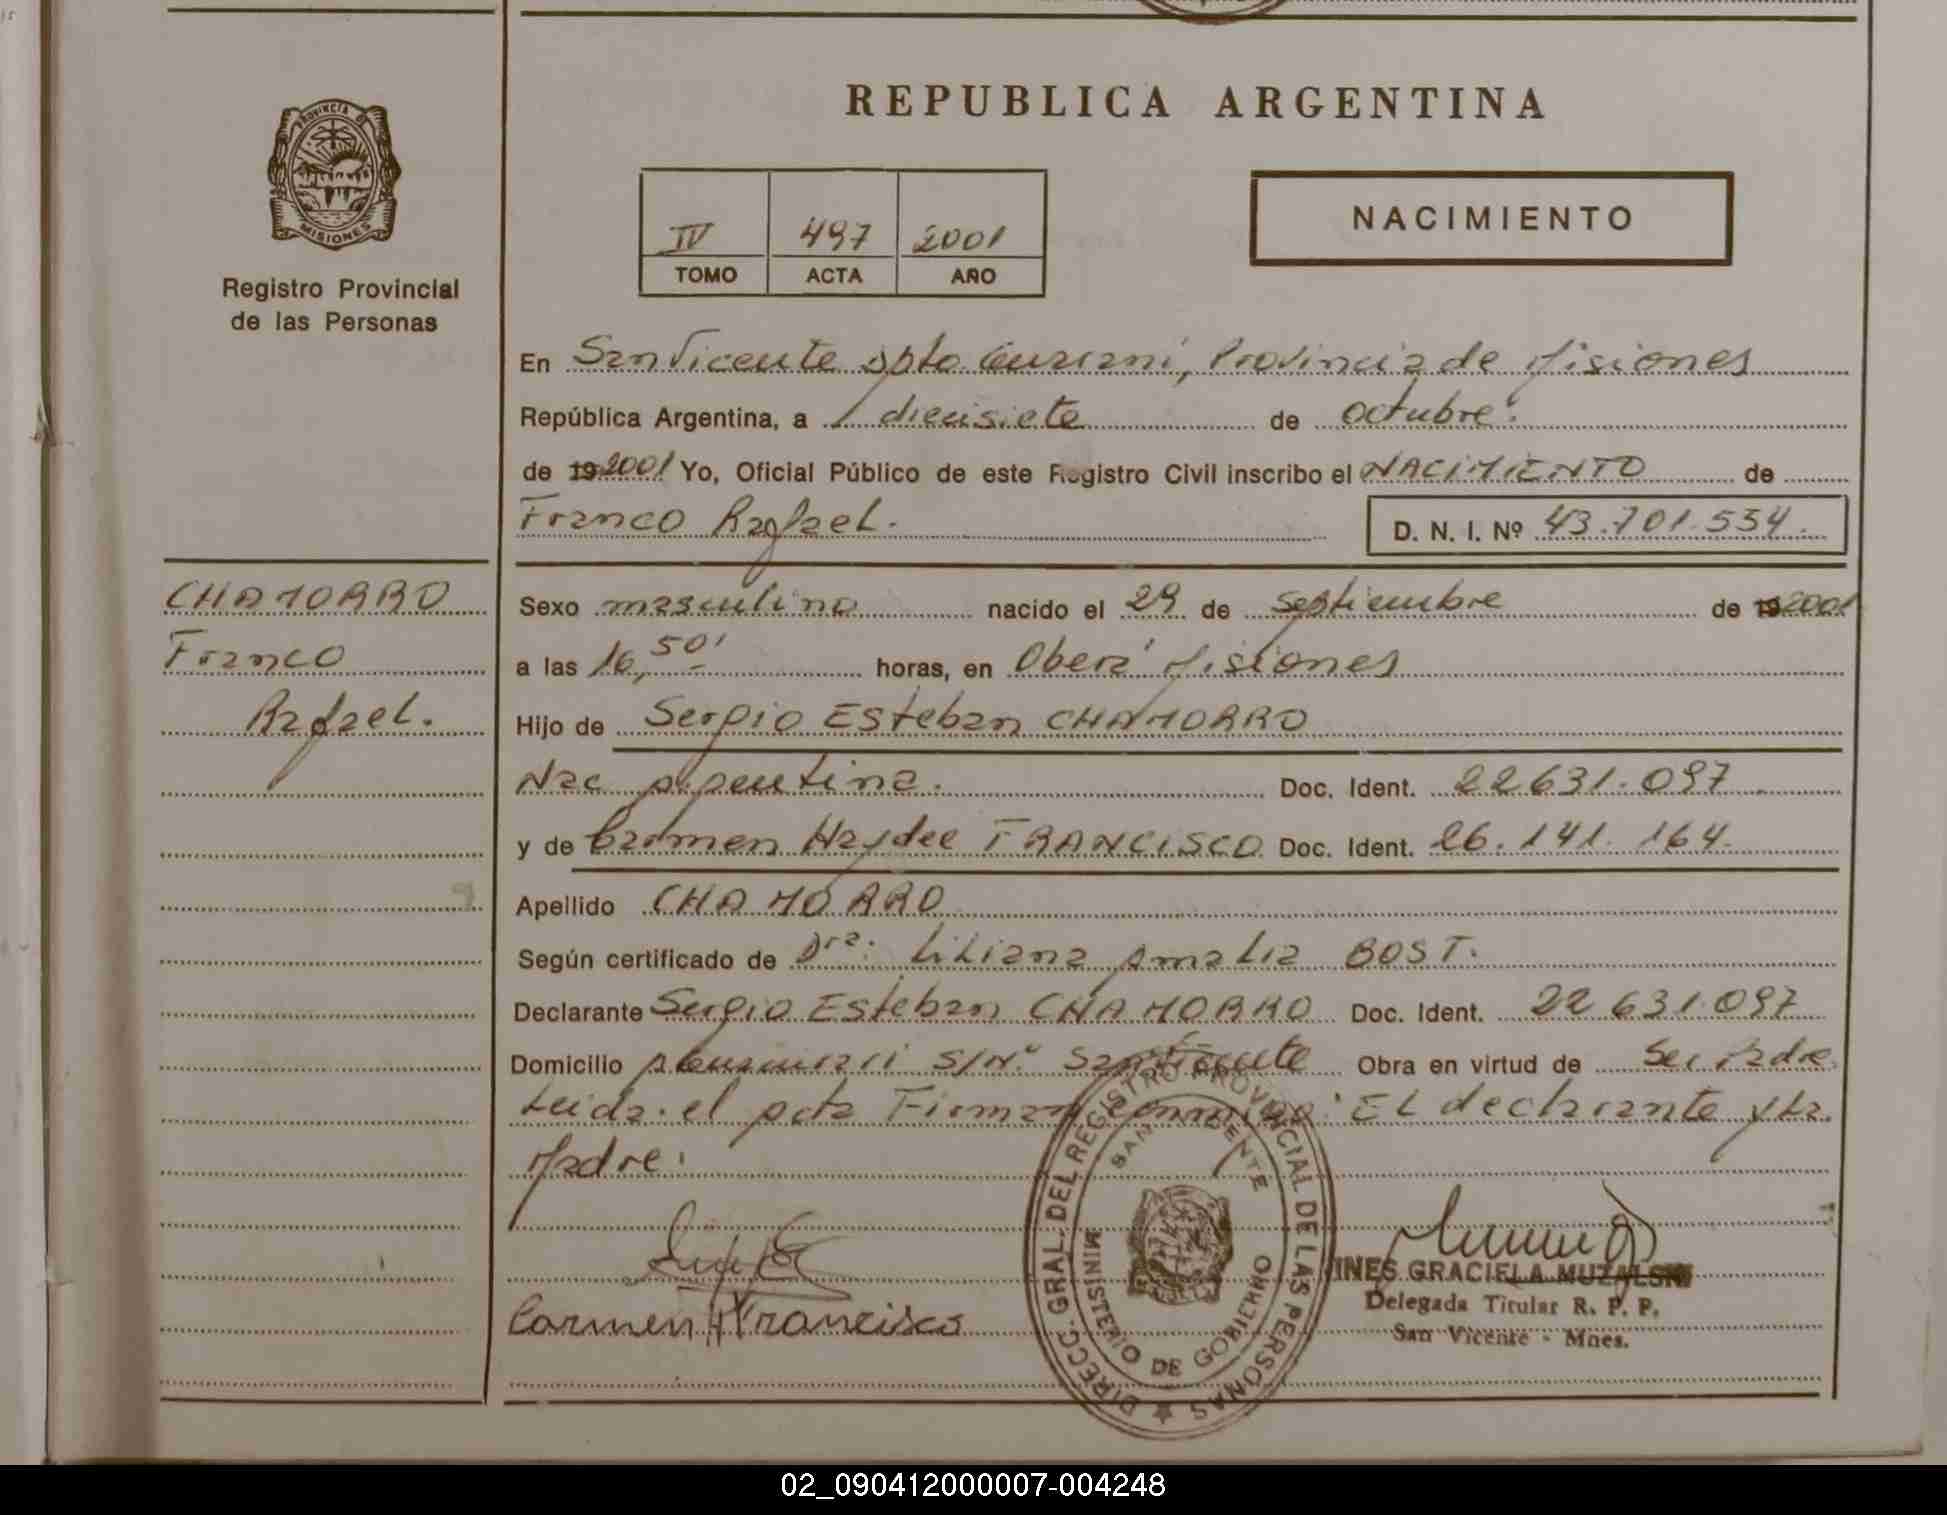 REPUBLICA ARGENTINA
PROVINCIA DE
MISIONES
Registro Provincial
de las Personas
IV 497 2001
TOMO ACTA AÑO
NACIMIENTO
En San Vicente Dpto Guaraní, Provincia de Misiones
República Argentina, a diecisiete de octubre.
de 19 2001 Yo, Oficial Público de este Registro Civil inscribo el NACIMIENTO de
Franco Rafael. D. N. I. Nº 43.701.534.
CHAMORRO
Franco
Rafael.
Sexo masculino nacido el 29 de septiembre de 19 2001
a las 16,50' horas, en Oberá Misiones
Hijo de Sergio Esteban CHAMORRO
Nac Argentina. Doc. Ident. 22 631.097
y de Carmen Haydee FRANCISCO Doc. Ident. 26.141.164.
Apellido CHAMORRO
Según certificado de Dra. Liliana Amalia BOST.
Declarante Sergio Esteban CHAMORRO Doc. Ident. 22 631.097
Domicilio S/Nº San Vicente Obra en virtud de Ser Padre
Leida el Acta Firman conmigo: El declarante y la
Madre:
Carmen H Francisco
DIRECC. GRAL. DEL REGISTRO PROVINCIAL DE LAS PERSONAS
SAN VICENTE
MINISTERIO DE GOBIERNO
INES GRACIELA MUZALSKI
Delegada Titular R. P. P.
San Vicente - Mnes.
02_090412000007-004248